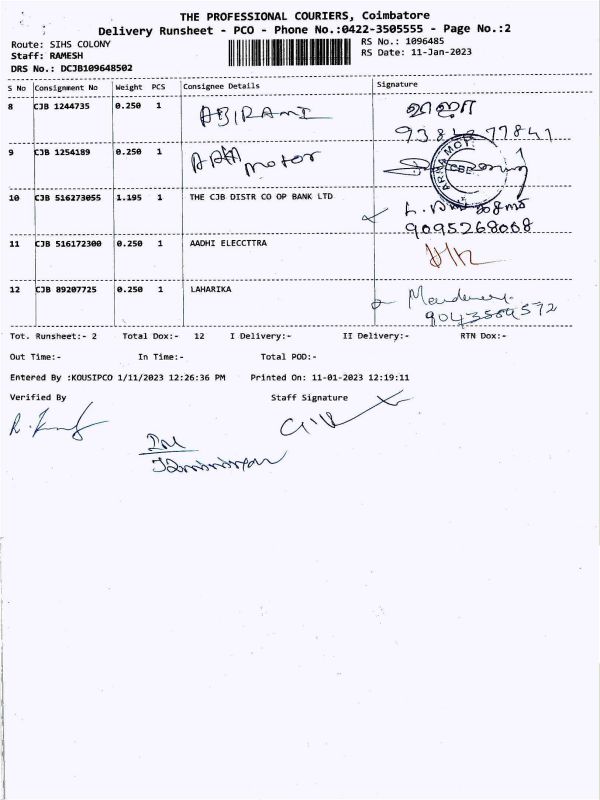 THE PROFESSIONAL COURIERS, Coimbatore
Delivery Runsheet - PCO - Phone No.:0422-3505555 - Page No.:2
Route: SIHS COLONY
Staff: RAMESH
DRS No.: DCJB109648502
RS No.: 1096485
RS Date: 11-Jan-2023
S No Consignment No Weight PCS Consignee Details Signature
8 CJB 1244735 0.250 1 ABIRAMI
9 CJB 1254189 0.250 1 motor
10 CJB 516273055 1.195 1 THE CJB DISTR CO OP BANK LTD
9095268008
11 CJB 516172300 0.250 1 AADHI ELECCTTRA
12 CJB 89207725 0.250 1 LAHARIKA
Tot. Runsheet:- 2 Total Dox:- 12 I Delivery:- II Delivery:- RTN Dox:-
Out Time:- In Time:- Total POD:-
Entered By :KOUSIPCO 1/11/2023 12:26:36 PM Printed On: 11-01-2023 12:19:11
Verified By Staff Signature